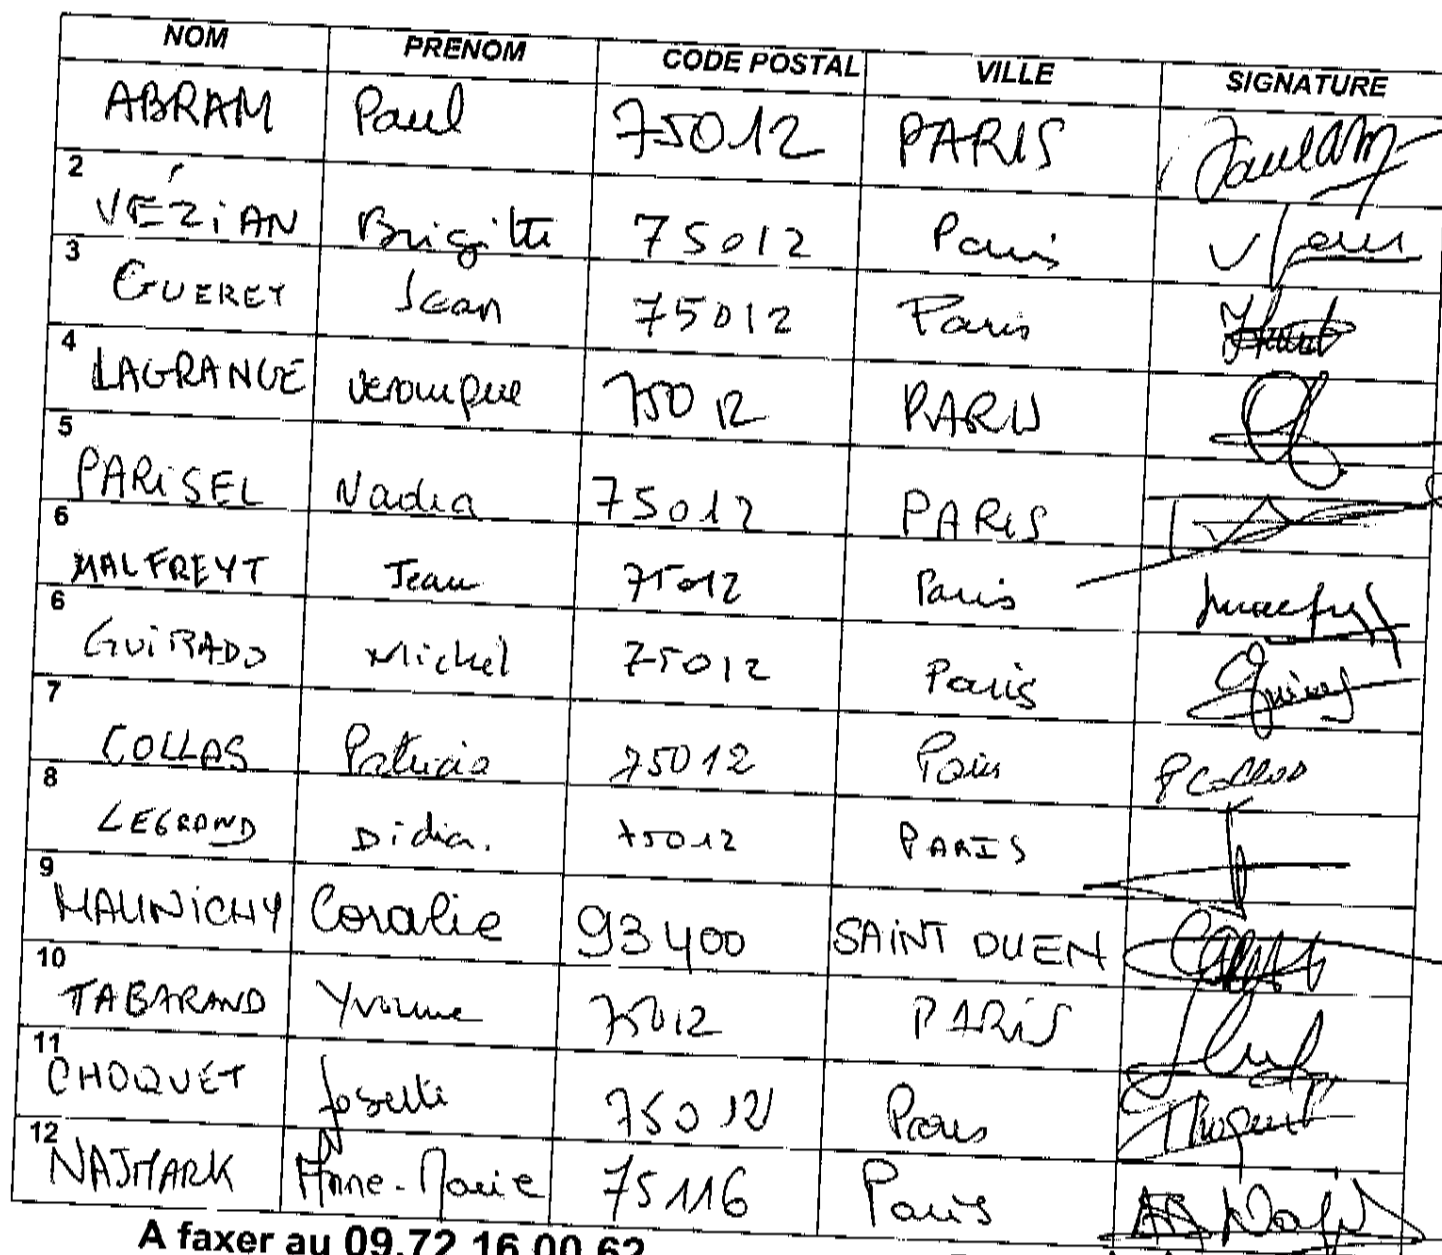 NOM PRENOM CODE POSTAL VILLE SIGNATURE
ABRAM Paul 75012 PARIS
2 VÉZIAN Brigitte 75012 Paris
3 GUERET Jean 75012 Paris
4 LAGRANGE Veronique 75012 PARIS
5 PARISEL Nadia 75012 PARIS
6 MALFREYT Jean 75012 Paris
6 GUIRADO Michel 75012 Paris
7 COLLAS Patricia 75012 Paris
8 LEGRAND Didier. 75012 PARIS
9 MAUNICHY Coralie 93400 SAINT OUEN
10 TABARAND Yvonne 75012 PARIS
11 CHOQUET Josette 75012 Paris
12 NAJMARK Anne-Marie 75116 Paris
A faxer au 09.72.16.00.62